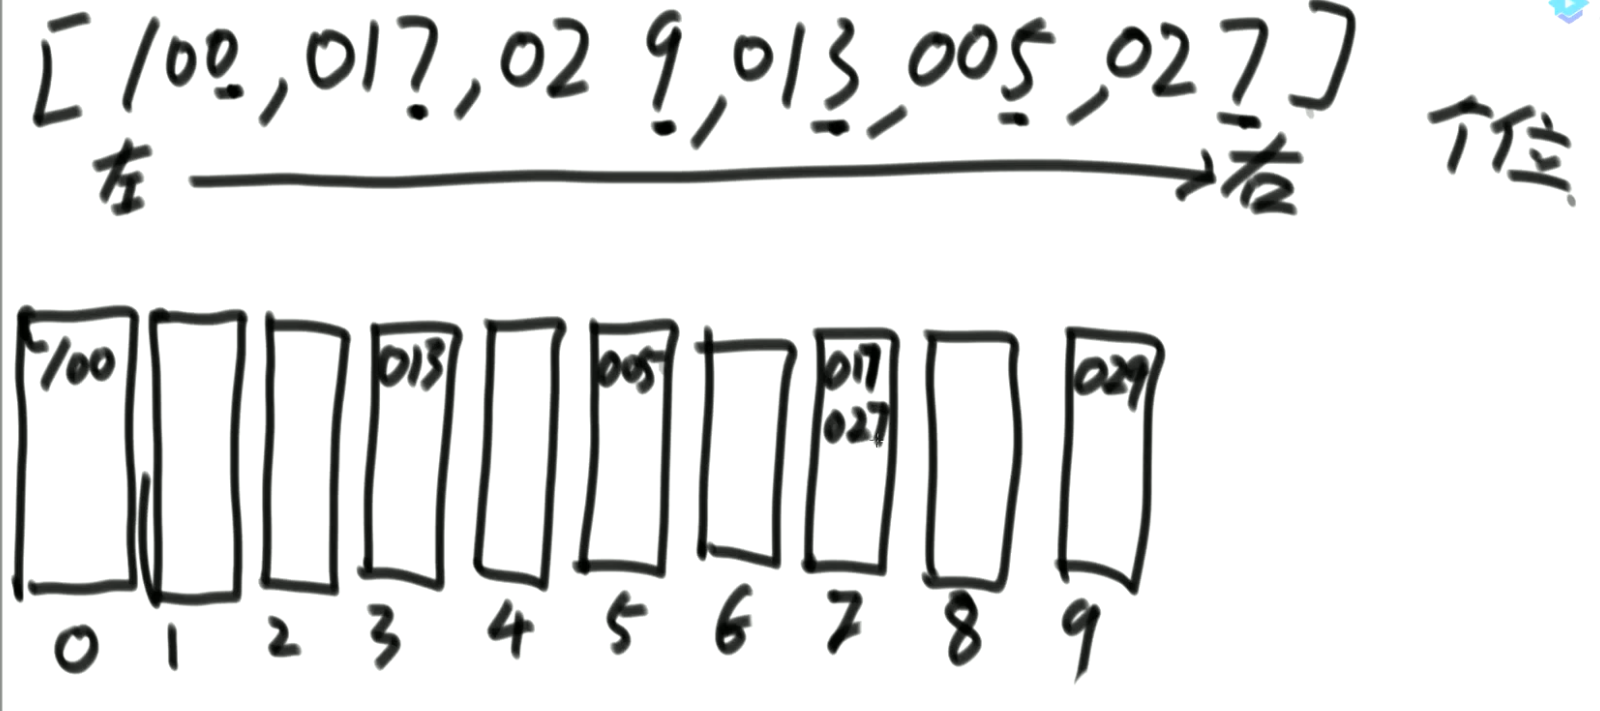 [100,017,029,013,005,027]
个位
左 右
100 013 005 017 029
027
0 1 2 3 4 5 6 7 8 9